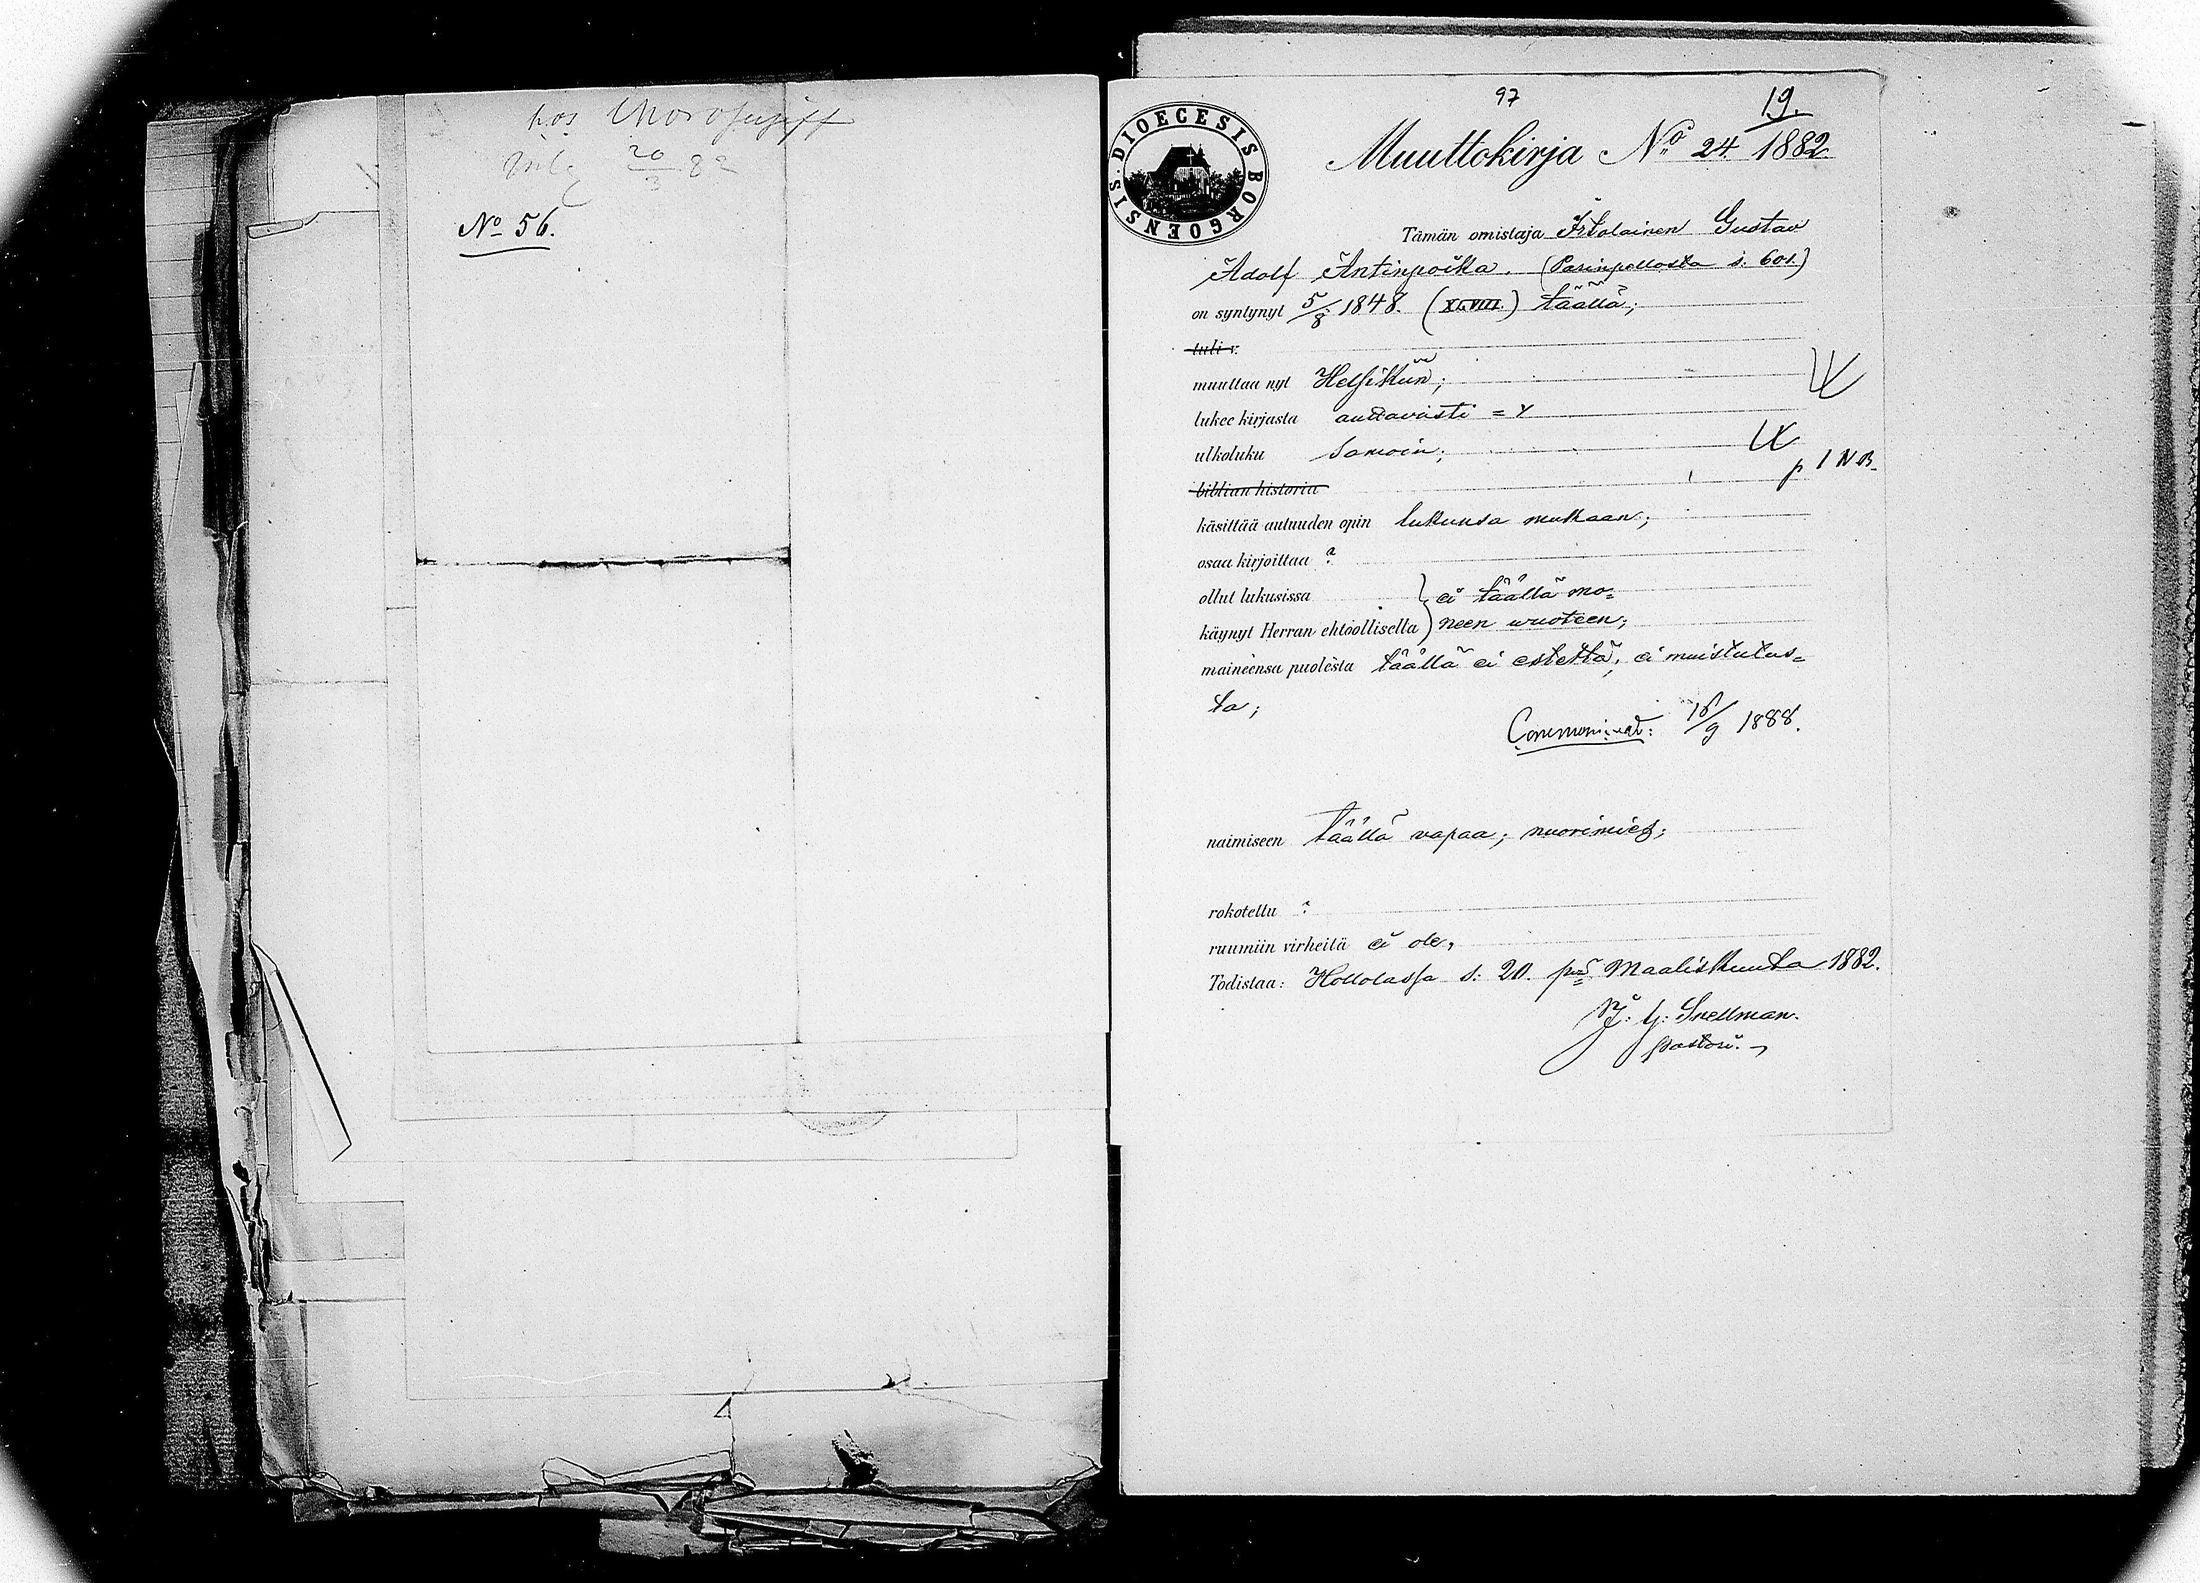 hos
20/3 82
No 56.
97
19.
DIOECESIS BORGOENSIS.
Muuttokirja No 24. 1882.
Tämän omistaja Gustav
Adolf Antinpoika. (Parinpellosta s. 601.)
on syntynyt 5/8 1848. (XLVIII.) täällä;
tuli v.
muuttaa nyt Helsikiin;
lukee kirjasta auttavasti = Y
ulkoluku samoin;
p 1 NB.
biblian historia
käsittää autuuden opin lukunsa mukaan;
osaa kirjoittaa ?
ollut lukusissa } ei täällä mo=
käynyt Herran ehtoollisella } neen wuoteen;
maineensa puolesta täällä ei estettä, ei muistutus=
ta;
Communicat: 16/9 1888.
naimiseen täällä vapaa; nuorimies;
rokotettu ?
ruumiin virheitä ei ole,
Todistaa: Hollolassa s: 20. p:nä Maaliskuuta 1882.
Snellman.
pastori.